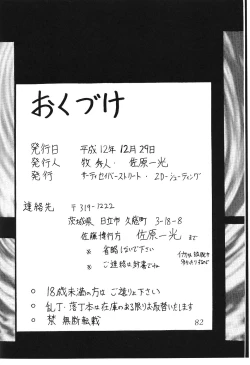 おくづけ
発行日 平成12年 12月 29日
発行人 牧 秀人・佐原一光
発行 サーティセイバーストリート・2D-シューティング
連絡先 〒319-1222
茨城県 日立市 久慈町 3-18-8
佐藤博行方 佐原一光 まで
※ 省略しないで下さい
※ ご連絡は封書でね
○ 18歳未満の方は ご遠りょ下さい
○ 乱丁・落丁本は在庫のある限りお取替いをします
○ 禁 無断転載
82